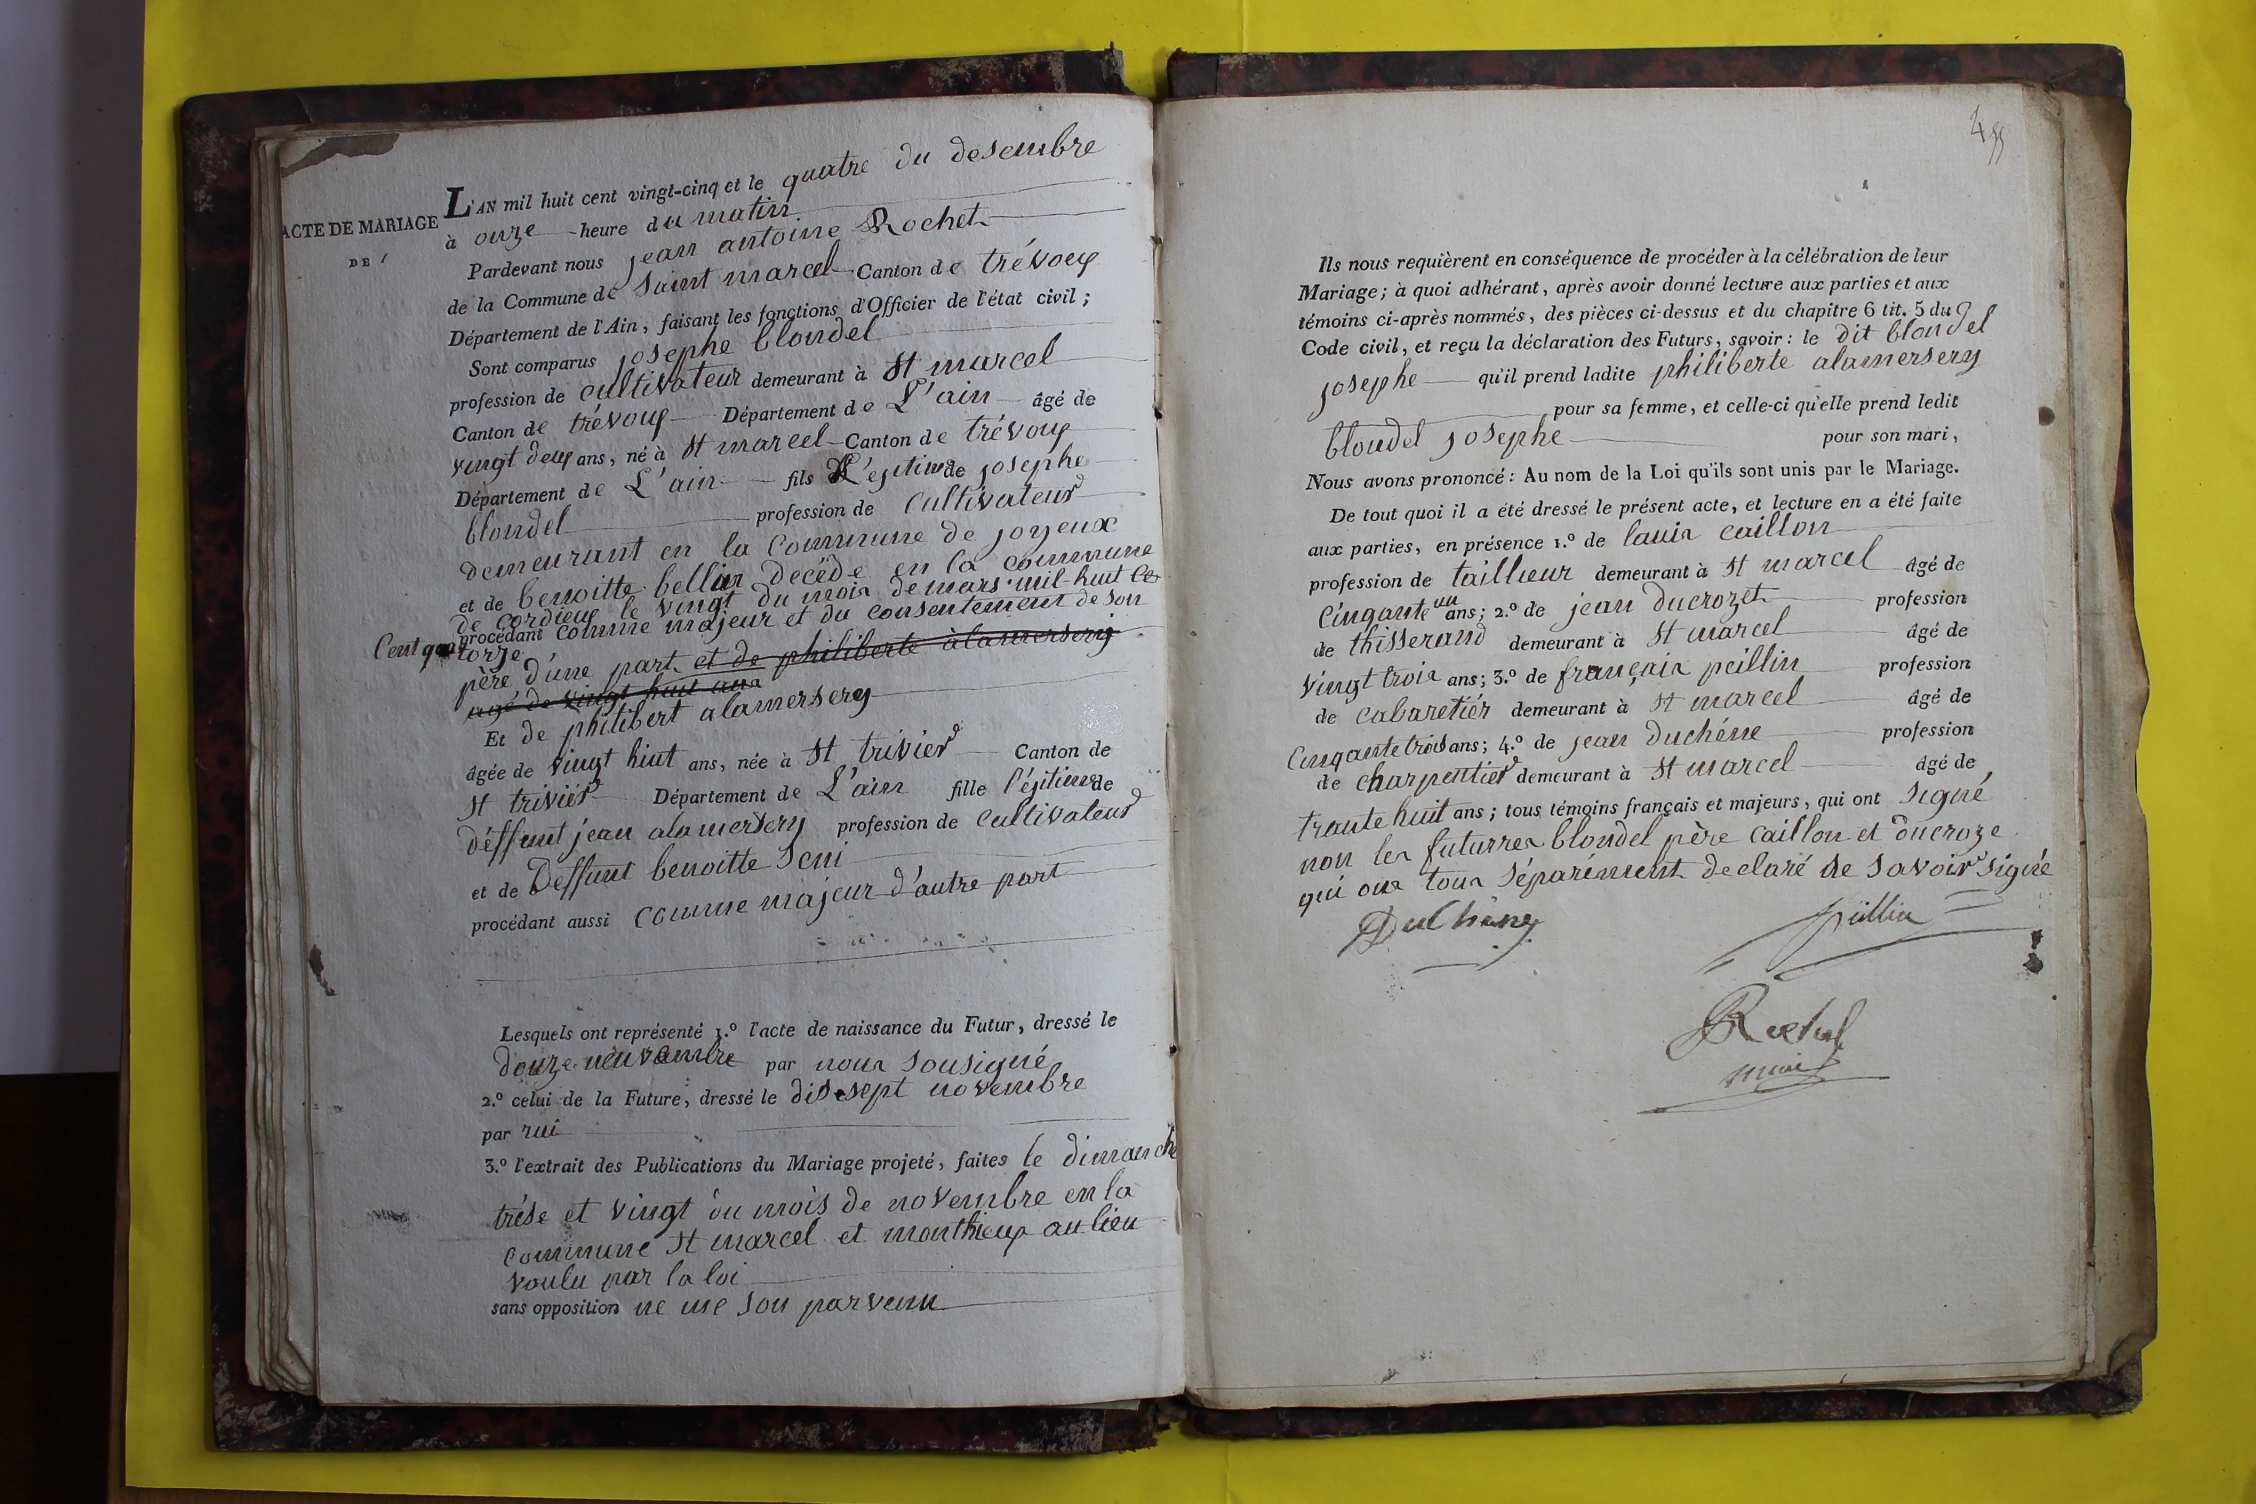 ACTE DE MARIAGE
DE
L'AN mil huit cent vingt-cinq et le quatre du desembre
à onze heure du matin
Pardevant nous jean antoine Rochet
de la Commune de saint marcel Canton de trévoux
Département de l'Ain, faisant les fonctions d'Officier de l'état civil ;
Sont comparus josephe blondel
profession de cultivateur demeurant à St marcel
Canton de trévoux Département de L'ain âgé de
vingt deux ans, né à St marcel Canton de trévoux
Département de L'ain fils L'égitime de josephe
blondel profession de cultivateur
demeurant en la commune de joyeux
et de benoitte bellin decéde en la commune
de cordieux le vingt du mois de mars mil huit ce
procédant comme majeur et du consentement de son
Cent quatorze
père d'une part et de philiberte àlamersery
agé de vingt huit ans
Et de philibert alamersery
âgée de vingt huit ans, née à St trivier Canton de
St triviér Département de L'ain fille l'égitime de
déffunt jean alamersery profession de cultivateur
et de Deffunt benoitte seni
procédant aussi comme majeur d'autre part
Lesquels ont représenté 1.º l'acte de naissance du Futur, dressé le
douze neuvembre par nous sousigné
2.º celui de la Future, dressé le dis sept novembre
par rui
3.º l'extrait des Publications du Mariage projeté, faites le dimanche
trése et vingt du mois de novembre en la
commune St marcel et monthieux au lieu
voulu par la loi
sans opposition ne me son parvenu
Ils nous requièrent en conséquence de procéder à la célébration de leur
Mariage ; à quoi adhérant, après avoir donné lecture aux parties et aux
témoins ci-après nommés, des pièces ci-dessus et du chapitre 6 tit. 5 du
Code civil, et reçu la déclaration des Futurs, savoir : le dit blondel
josephe qu'il prend ladite philiberte alamersery
pour sa femme, et celle-ci qu'elle prend ledit
blondel josephe pour son mari,
Nous avons prononcé : Au nom de la Loi qu'ils sont unis par le Mariage.
De tout quoi il a été dressé le présent acte, et lecture en a été faite
aux parties, en présence 1.º de lauis caillon
profession de taillieur demeurant à St marcel âgé de
cinqante un ans ; 2.º de jean ducrozet profession
de thisserand demeurant à St marcel âgé de
vingt trois ans ; 3.º de français peillin profession
de cabaretiér demeurant à St marcel âgé de
cinqante trois ans ; 4.º de jean duchéne profession
de charpentier demeurant à St marcel âgé de
trante huit ans ; tous témoins français et majeurs, qui ont signé
non les futurres blondel père caillon et ducroze
qui ons tous séparément declaré de savoir signé
DuChêne
peillin
Rochet
maire